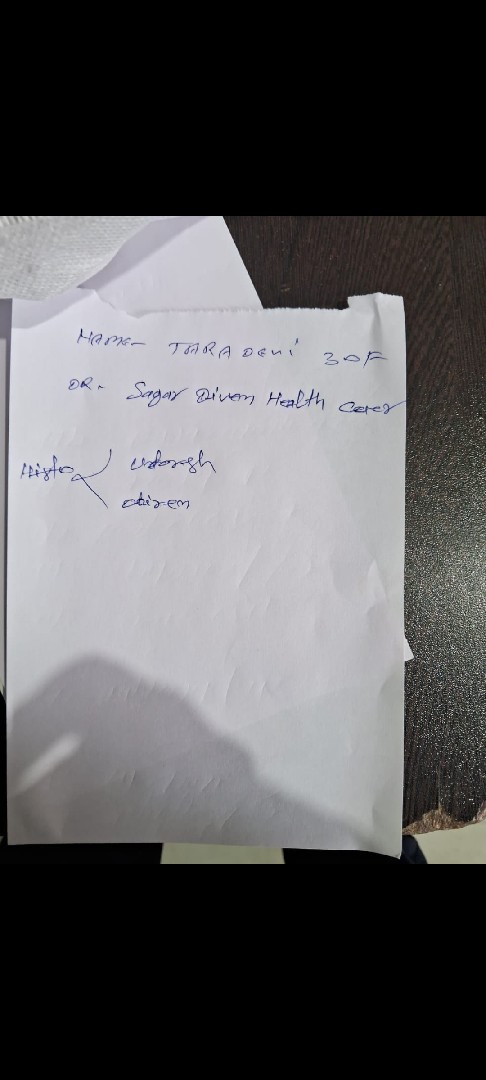 NAME- TARA DEVI 30F
DR. Sagar Diven Health Carer
Histo